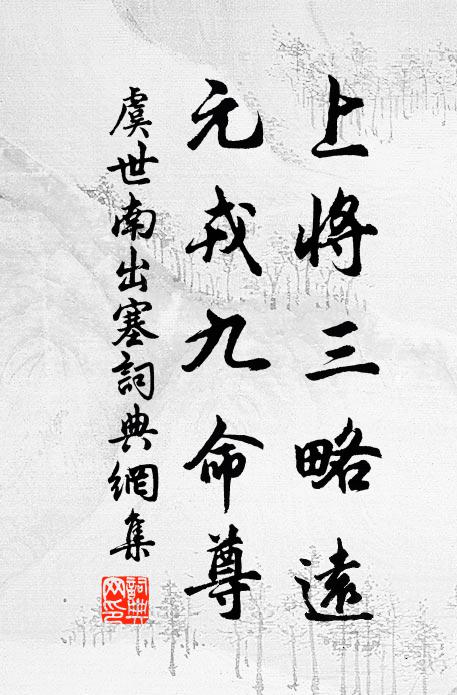 上將三略遠
元戎九命尊
虞世南出塞詞典網集
詞典